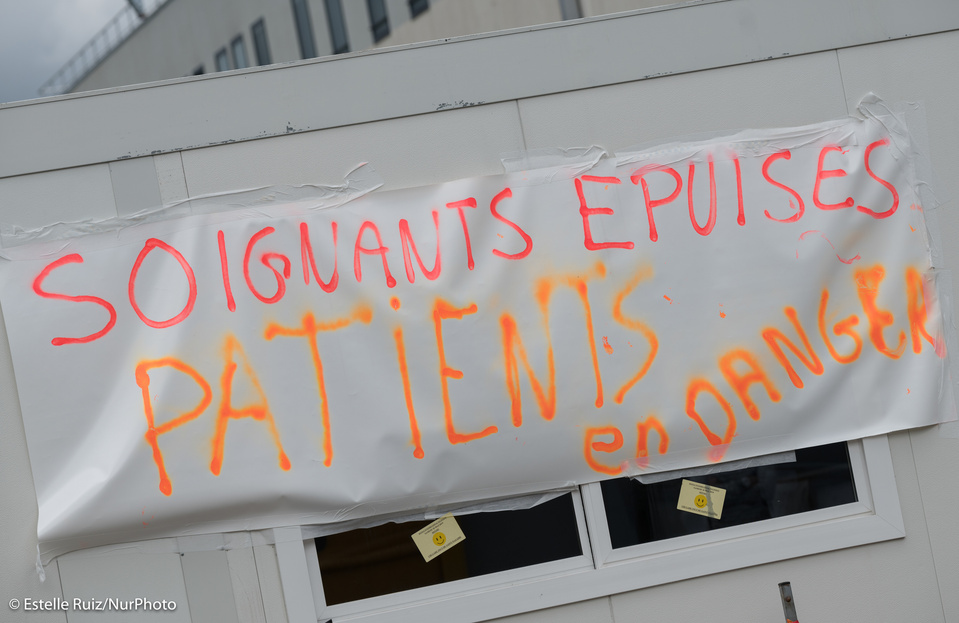 SOIGNANTS EPUISES
PATiENTS
en DANGER
© Estelle Ruiz/NurPhoto